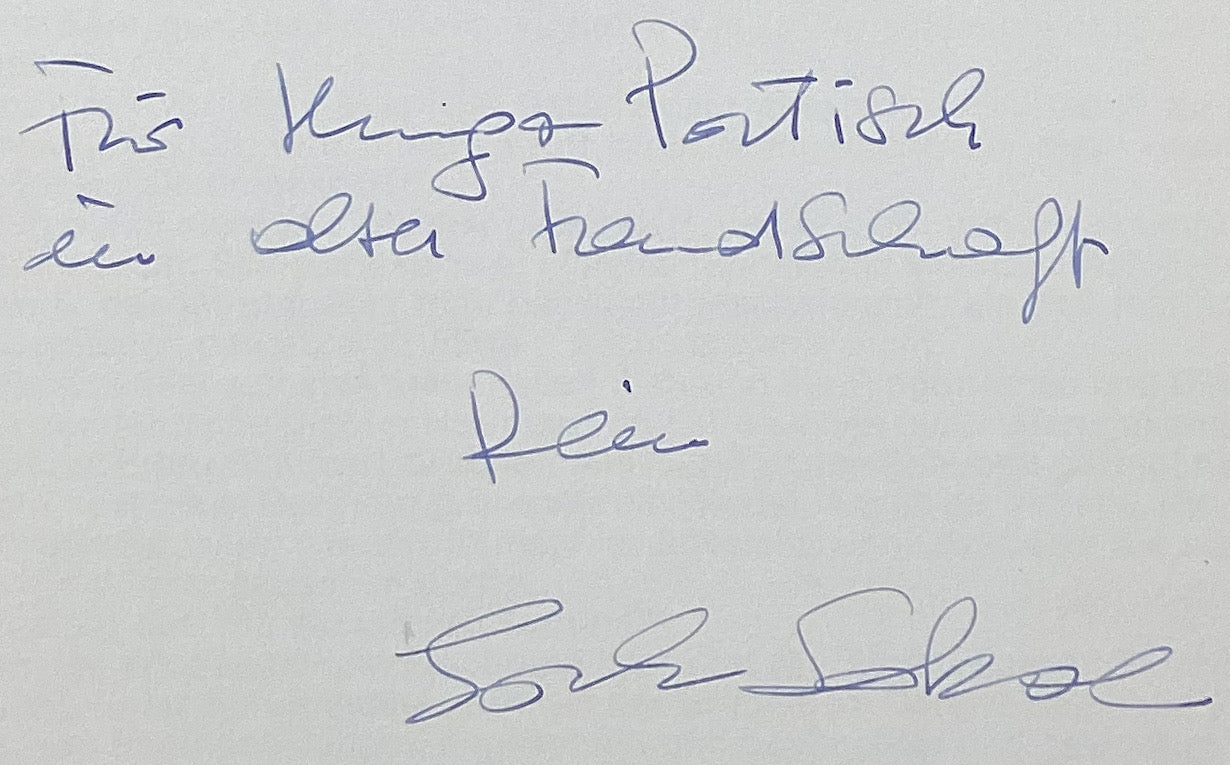 Für Hugo Portisch
in alter Freundschaft
Dein